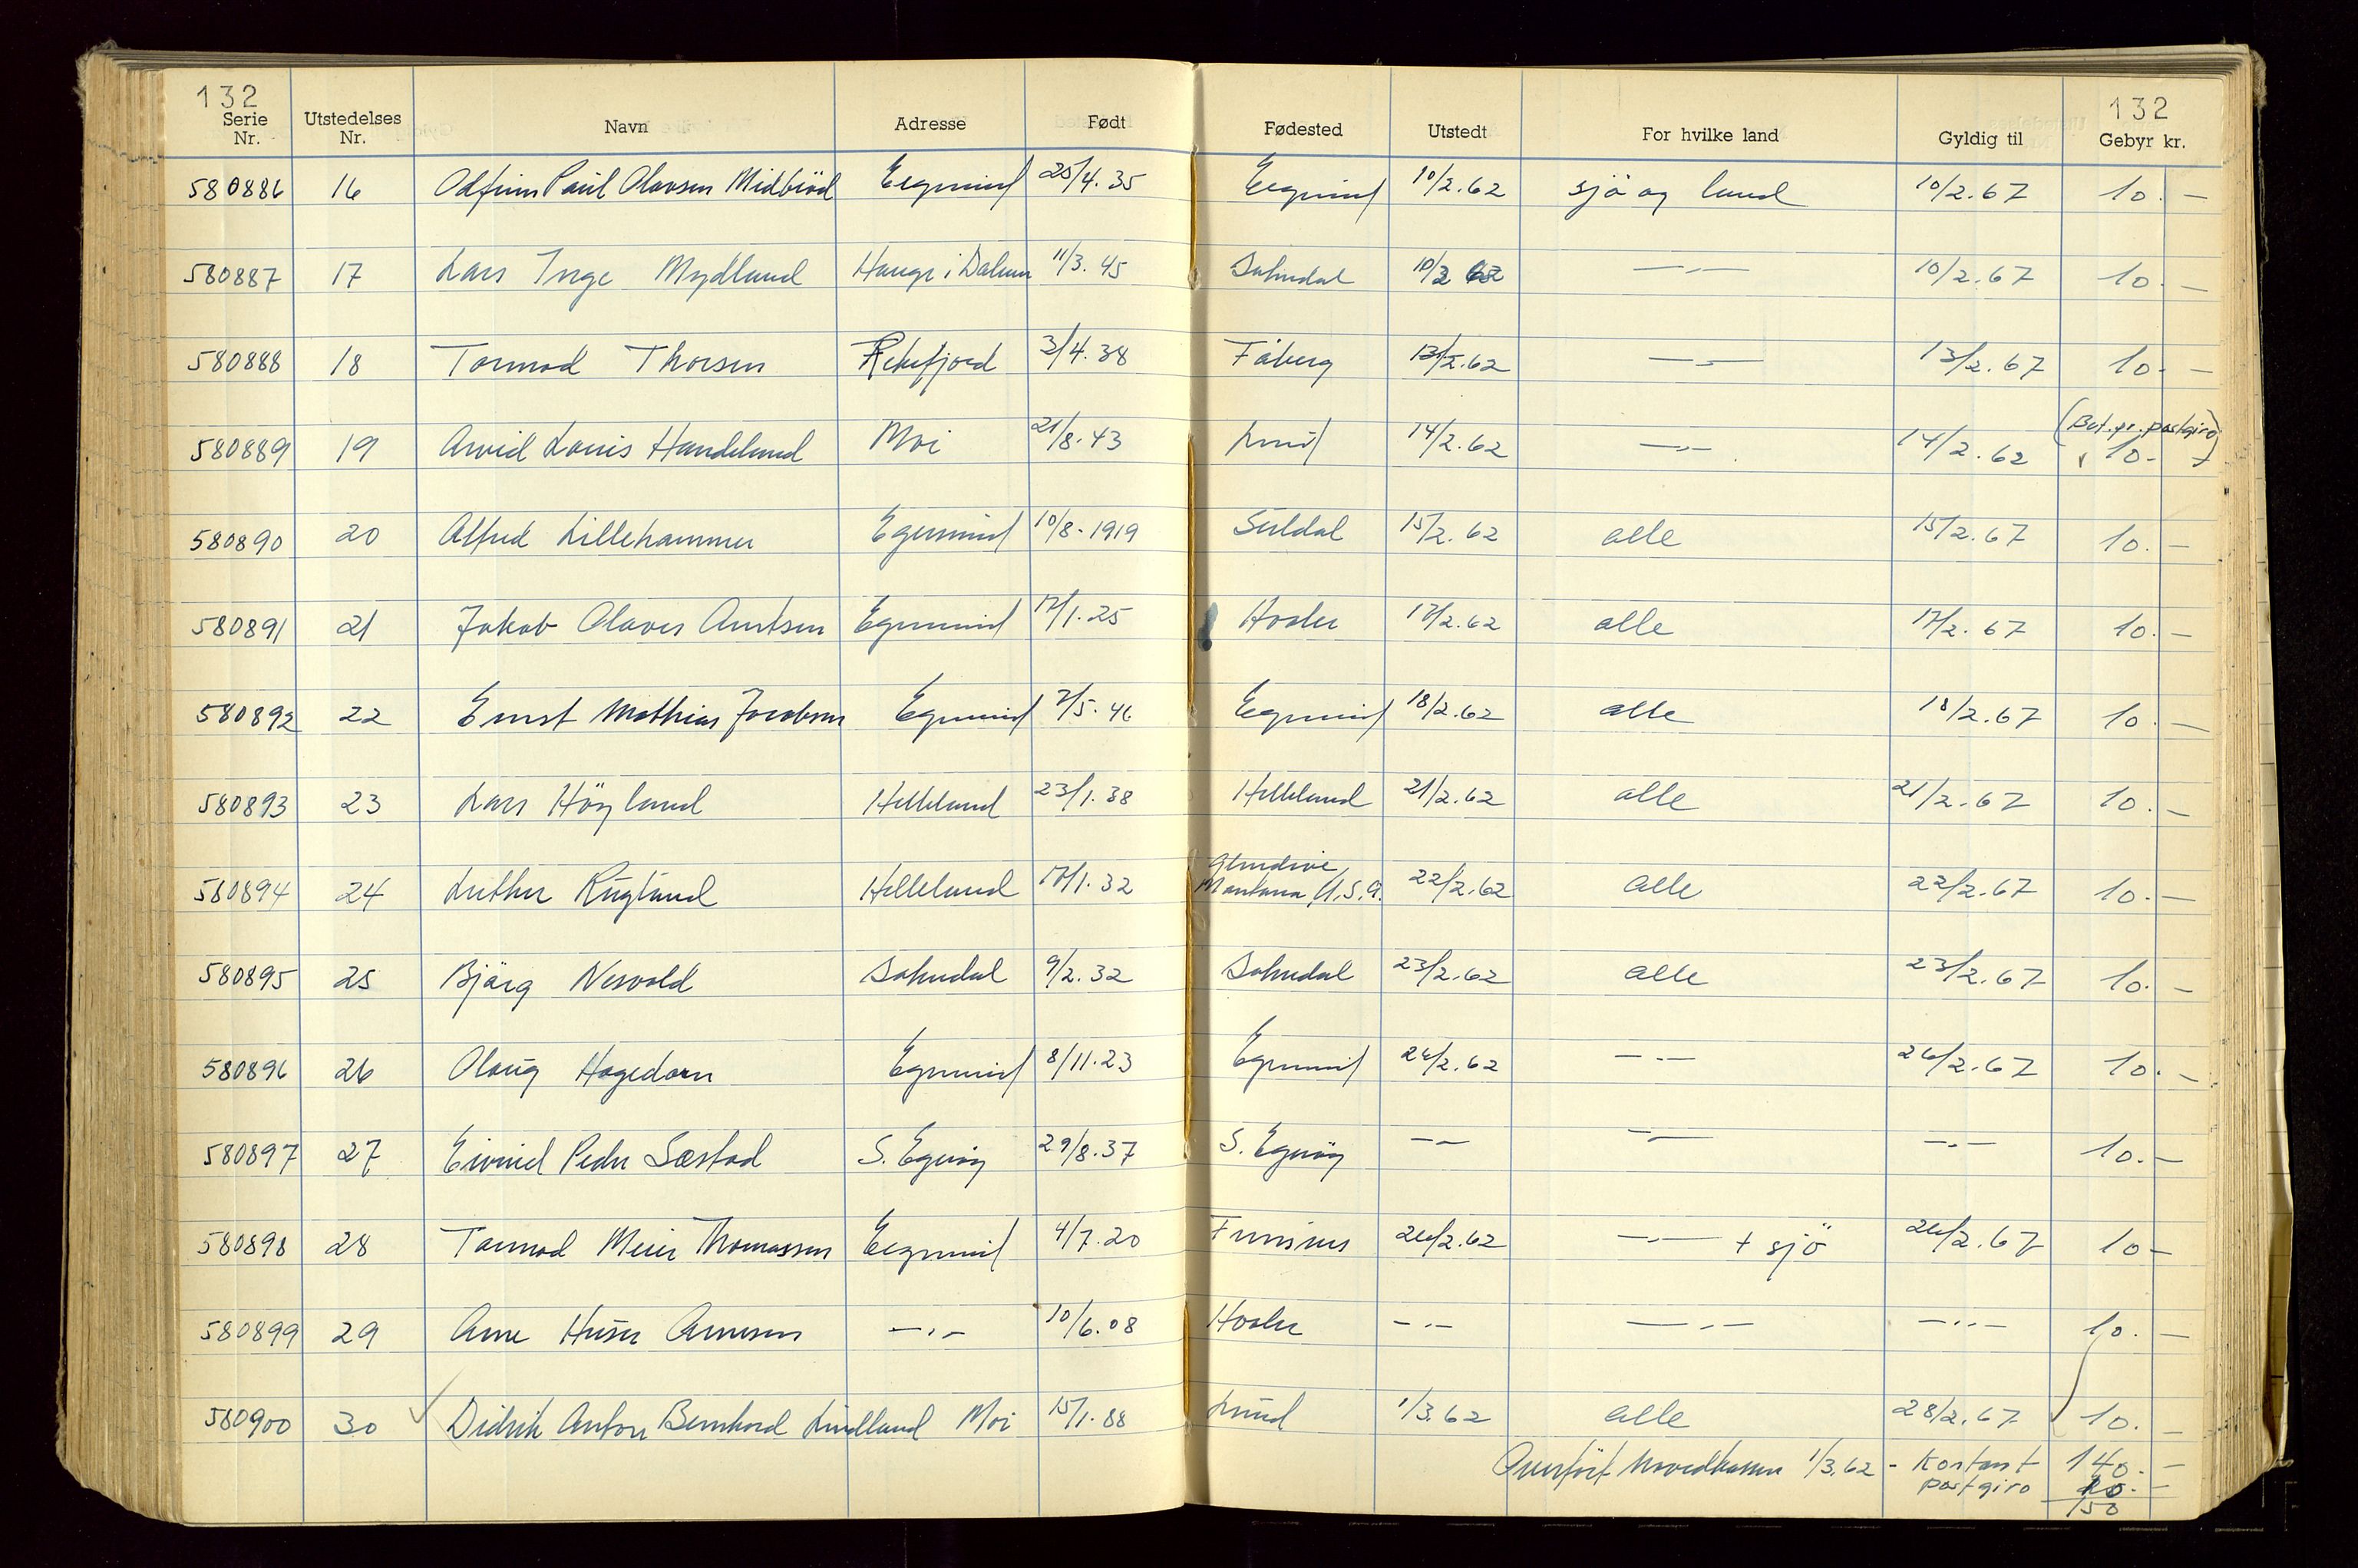 132 132
Serie Nr. Utstedelses Nr. Navn Adresse Født Fødested Utstedt For hvilke land Gyldig til Gebyr kr.
580886 16 Odfinn Paul Olavsen Midbröd Egersund 25/4.35 Egersund 10/2.62 sjö og land 10/2.67 10.-
580887 17 Lars Inge Mydland Hauge i Dalane 11/3.45 Sokndal 10/2 62 —„— 10/2.67 10.-
580888 18 Tormod Thorsen Rekefjord 3/4.38 Fåberg 13/2.62 —„— 13/2.67 10.-
580889 19 Arvid Louis Handeland Moi 21/8.43 Lund 14/2.62 —„— 14/2.62 (Bet. pr. postgiro) 10.-
580890 20 Alfred Lillehammer Egersund 10/8-1919 Suldal 15/2.62 alle 15/2.67 10.-
580891 21 Jakob Olaves Arntsen Egersund 17/1.25 17/2.62 alle 17/2.67 10.-
580892 22 Ernst Mathias Jacobsen Egersund 7/5.46 Egersund 18/2.62 alle 18/2.67 10.-
580893 23 Lars Höyland Helleland 23/1.38 Helleland 21/2.62 alle 21/2.67 10.-
580894 24 Luther Rugland Helleland 17/1.32 Glendive, Montana, U.S.A. 22/2.62 alle 22/2.67 10.-
580895 25 Bjärg Nesvold Sokndal 9/2.32 Sokndal 23/2.62 alle 23/2.67 10.-
580896 26 Olaug Hagedorn Egersund 8/11.23 Egersund 26/2.62 —„— 26/2.67 10.-
580897 27 Eivind Peder Sæstad S. Egeröy 29/8.37 S. Egeröy —„— —„— —„— 10.-
580898 28 Tormod Meier Thomassen Egersund 4/7.20 26/2.62 —„— + sjö 26/2.67 10-
580899 29 Arne Huser Arnesen —„— 10/6.08 —„— —„— —„— 10.-
580900 30 Didrik Anton Bernhard Lindland Moi 15/1.88 Lund 1/3.62 alle 28/2.67 10.-
Overfört hovedkassen 1/3.62 - Kontant 140.-
postgiro 10.-
150